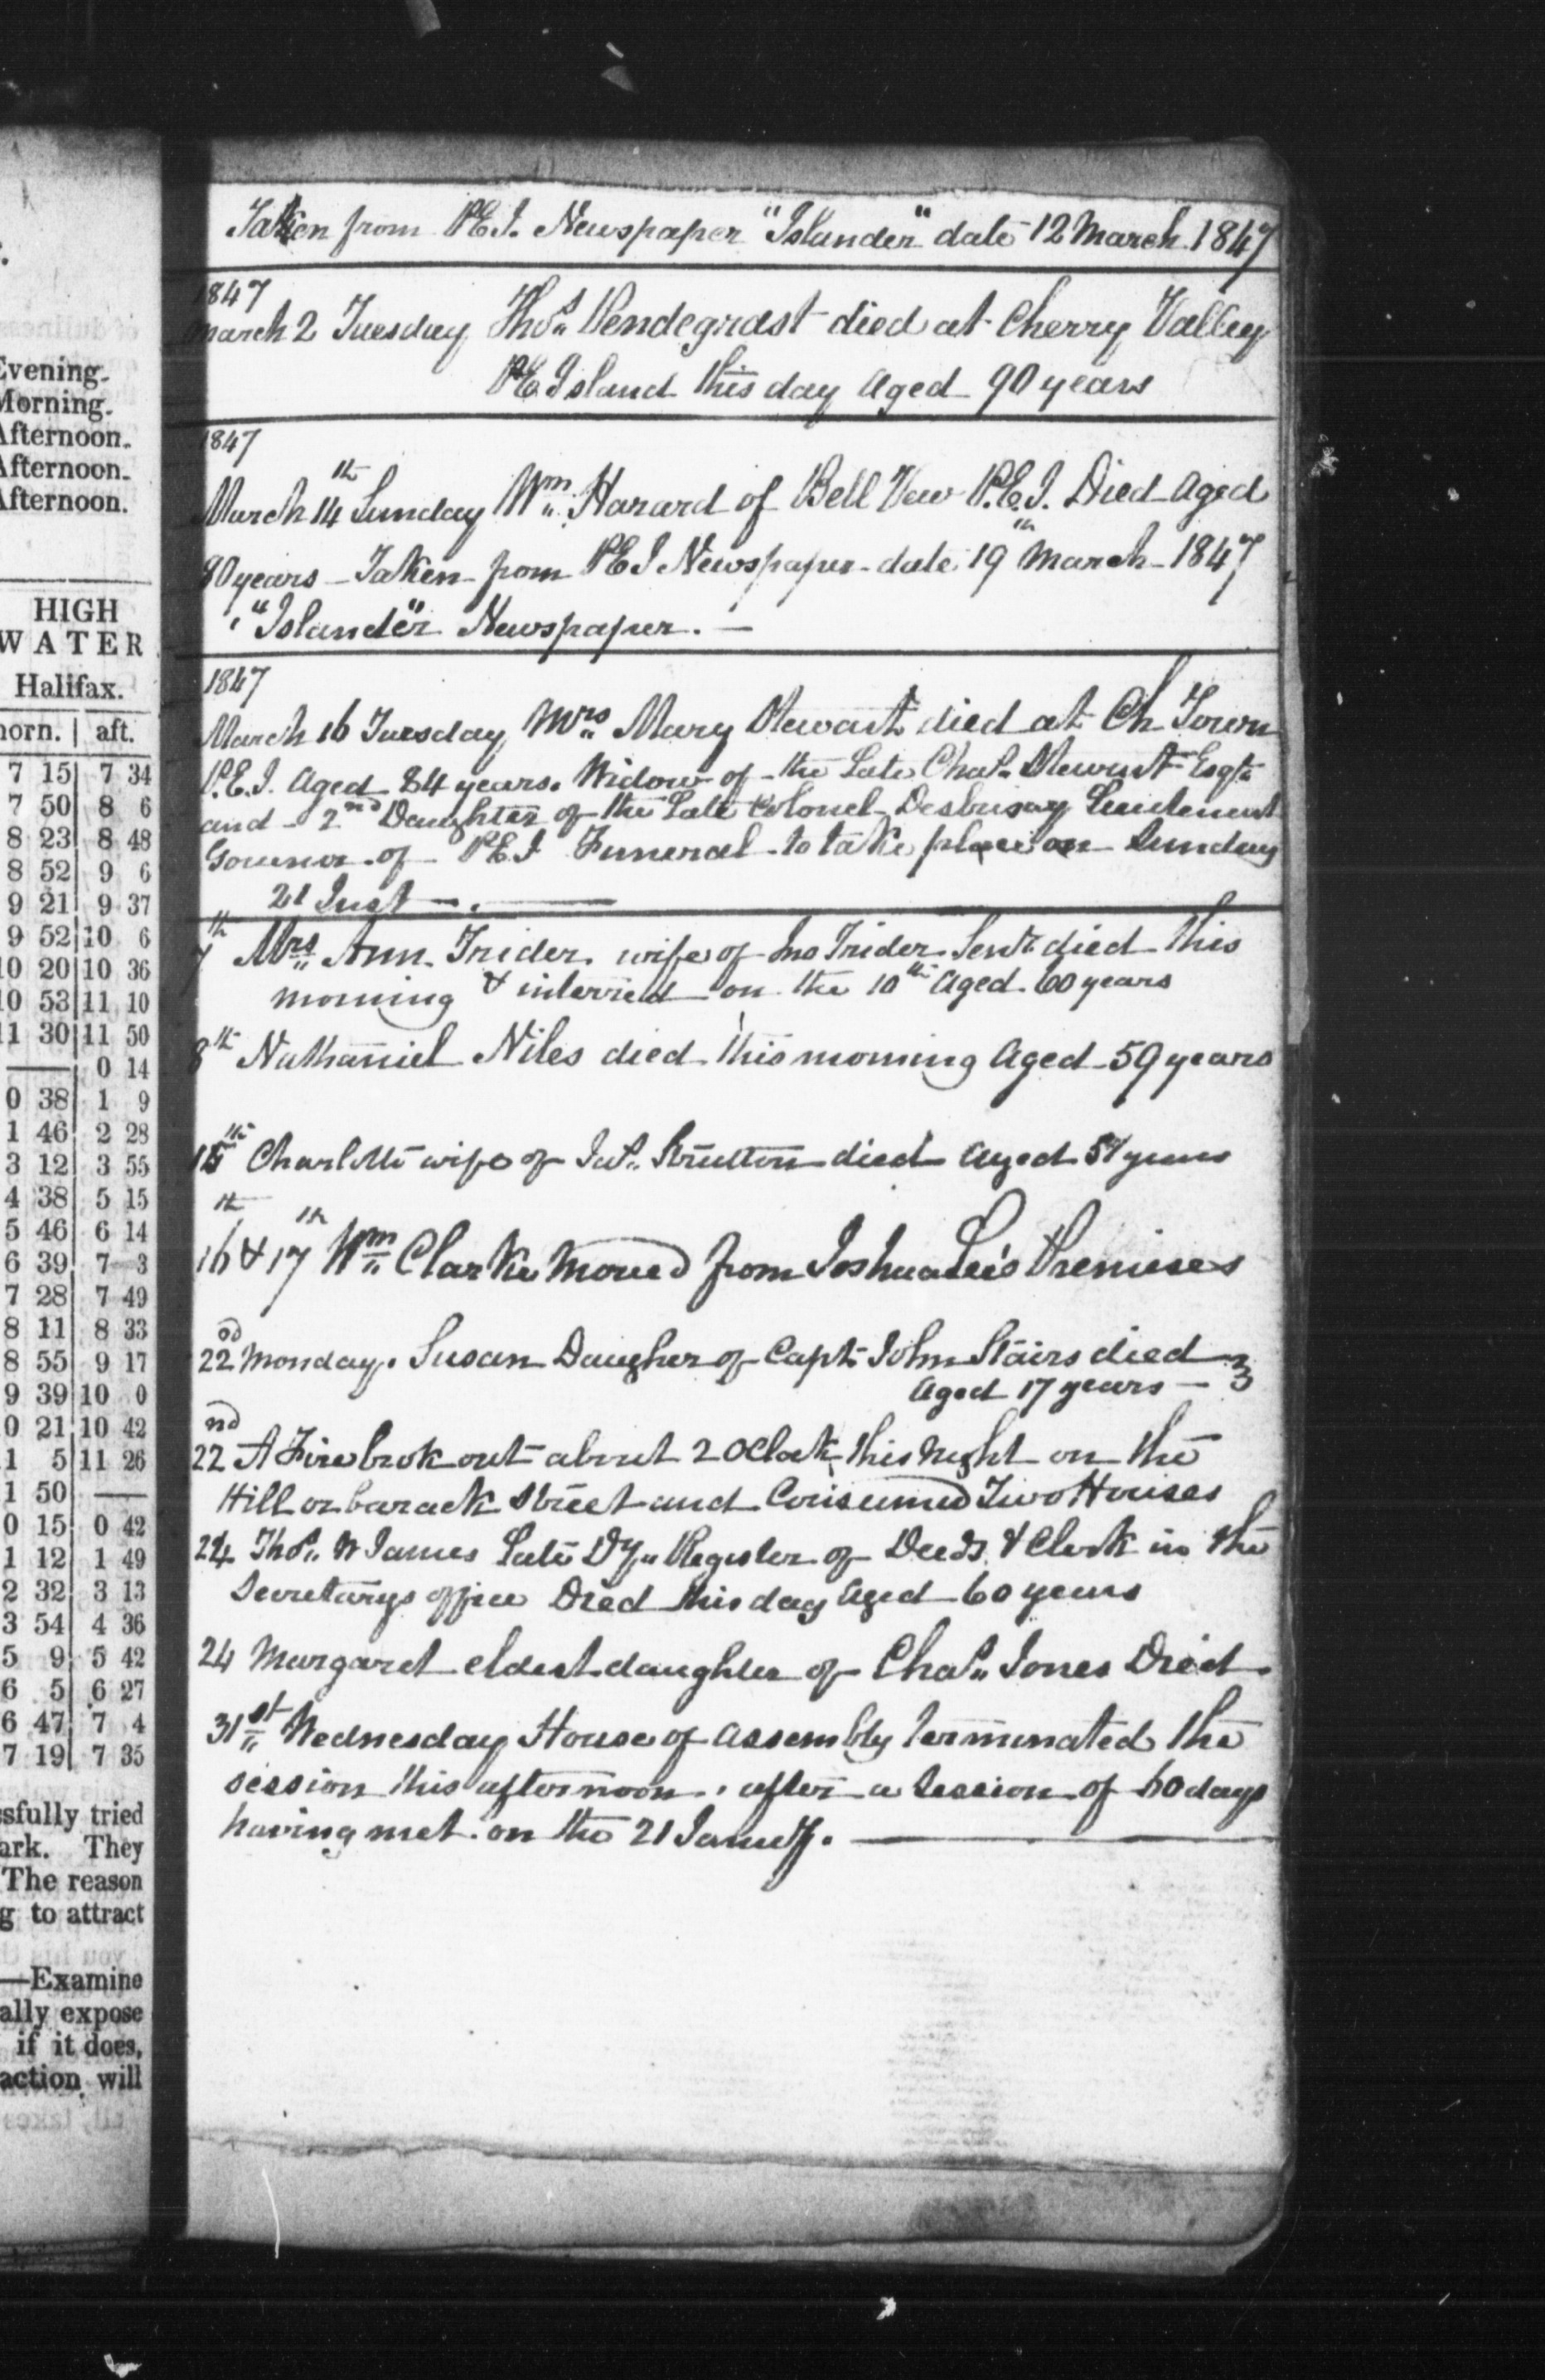 Evening.
Morning.
Afternoon.
Afternoon.
Afternoon.
HIGH
WATER
Halifax.
morn. | aft.
7 15 7 34
7 50 8 6
8 23 8 48
8 52 9 6
9 21 9 37
9 52 10 6
10 20 10 36
10 53 11 10
11 30 11 50
— 0 14
0 38 1 9
1 46 2 28
3 12 3 55
4 38 5 15
5 46 6 14
6 39 7 3
7 28 7 49
8 11 8 33
8 55 9 17
9 39 10 0
0 21 10 42
1 5 11 26
1 50 —
0 15 0 42
1 12 1 49
2 32 3 13
3 54 4 36
5 9 5 42
6 5 6 27
6 47 7 4
7 19 7 35
ssfully tried
ark. They
The reason
g to attract
—Examine
ally expose
if it does,
action will
Taken from P.E.I. Newspaper "Islander" date 12 March 1847
1847
March 2 Tuesday Thos. Pendegrast died at Cherry Valley
P E Island this day Aged 90 years
1847
March 14th Sunday Wm. Harard of Bell Vew P.E.I. Died Aged
80 years – Taken from P E I Newspaper date 19th March – 1847
"Islander" Newspaper. –
1847
March 16 Tuesday Mrs. Mary Stewart died at Ch Town
P.E.I. Aged 84 years. Widow of the Late Chas. Stewart Esqr.
and 2nd Daughter of the Late Colonel Desbrisay Lieutenant
Governor of P E I Funeral to take place on Sunday
21 Inst –. –
7th Mrs. Ann Trider wife of Jno Trider Senr. died this
morning & interried on the 10th Aged 60 years
8th Nathaniel Niles died this morning Aged 59 years
15th Charlotte wife of Jas. died Aged years
16th & 17th Wm. Clarke Moved from Joshua Lee's Premises
22nd Monday. Susan Daugher of Capt. John Stairs died
Aged 17 years – 3
22nd A Fire brok out about 2 OClock this Night on the
Hill or barack Street and Consumed Two Houses
24 Thos. W James Late Dy. Register of Deeds & Clerk in the
Secretarys office Died this day Aged 60 years
24 Margaret eldest daughter of Chas. Jones Died.
31st Wednesday House of Assembly terminated the
session this afternoon. after a Session of 60 days
having met on the 21 Januy. –